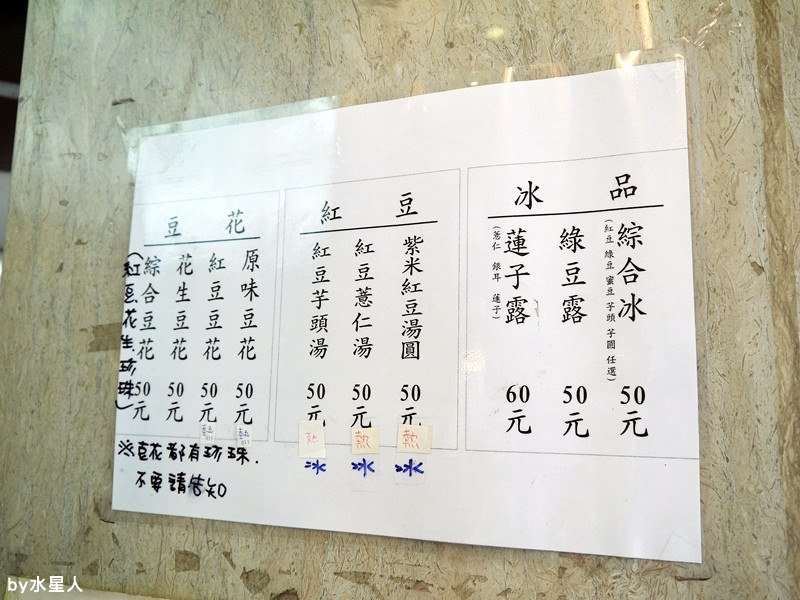 冰品
綜合冰
(紅豆 綠豆 蜜豆 芋頭 芋圓 任選)
50元
綠豆露
50元
蓮子露
(薏仁 銀耳 蓮子)
60元
紅豆
紫米紅豆湯圓
50元
熱
冰
紅豆薏仁湯
50元
熱
冰
紅豆芋頭湯
50元
熱
冰
豆花
原味豆花
50元
熱
紅豆豆花
50元
熱
花生豆花
50元
綜合豆花
(紅豆.花生.珍珠)
50元
※豆花都有珍珠.
不要請告知
by水星人